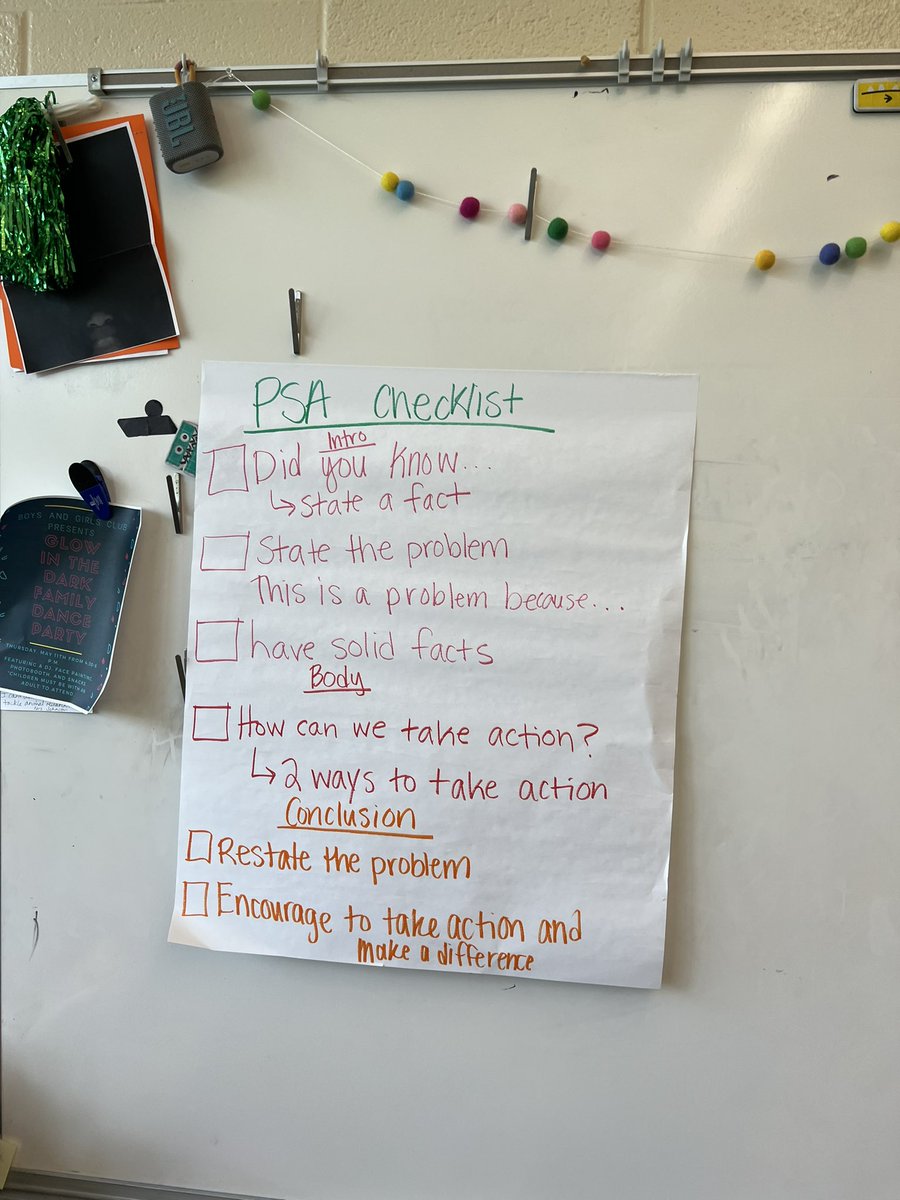 JBL
PSA Checklist
Intro
Did you know...
↳ State a fact
State the problem
This is a problem because...
have solid facts
Body
How can we take action?
↳ 2 ways to take action
Conclusion
Restate the problem
Encourage to take action and
make a difference
BOYS AND GIRLS CLUB
PRESENTS
GLOW
IN THE
DARK
FAMILY
DANCE
PARTY
THURSDAY, MAY 11TH FROM
P.M.
FEATURING A DJ, FACE PAINTING,
PHOTOBOOTH, AND SNACKS.
*CHILDREN MUST BE WITH AN
ADULT TO ATTEND